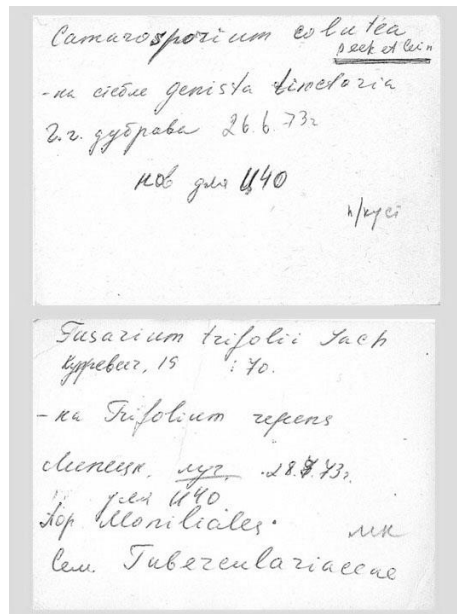 Camarosporium colutea
peck et Clin
- на стебле genista tinctoria
Г.г. дубрава 26.6.73г
нов для ЦЧО
п/куст
Fusarium trifolii Jacz
Купревич, 19 70.
- на Trifolium repens
Липецк, луг. 28.7.73г.
для ЦЧО
Пор. Moniliales.
МК
Сем. Tuberculariaceae